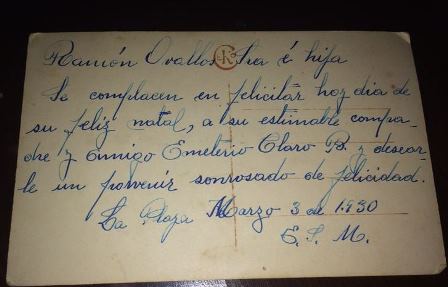 Ramón Ovallos Sra é hija
Se complacen en felicitar hoy dia de
su feliz natal, a su estimable compa-
dre y amigo Emeterio Claro B. y desear-
le un porvenir sonrosado de felicidad.
La Playa Marzo 3 de 1930
E. S. M.